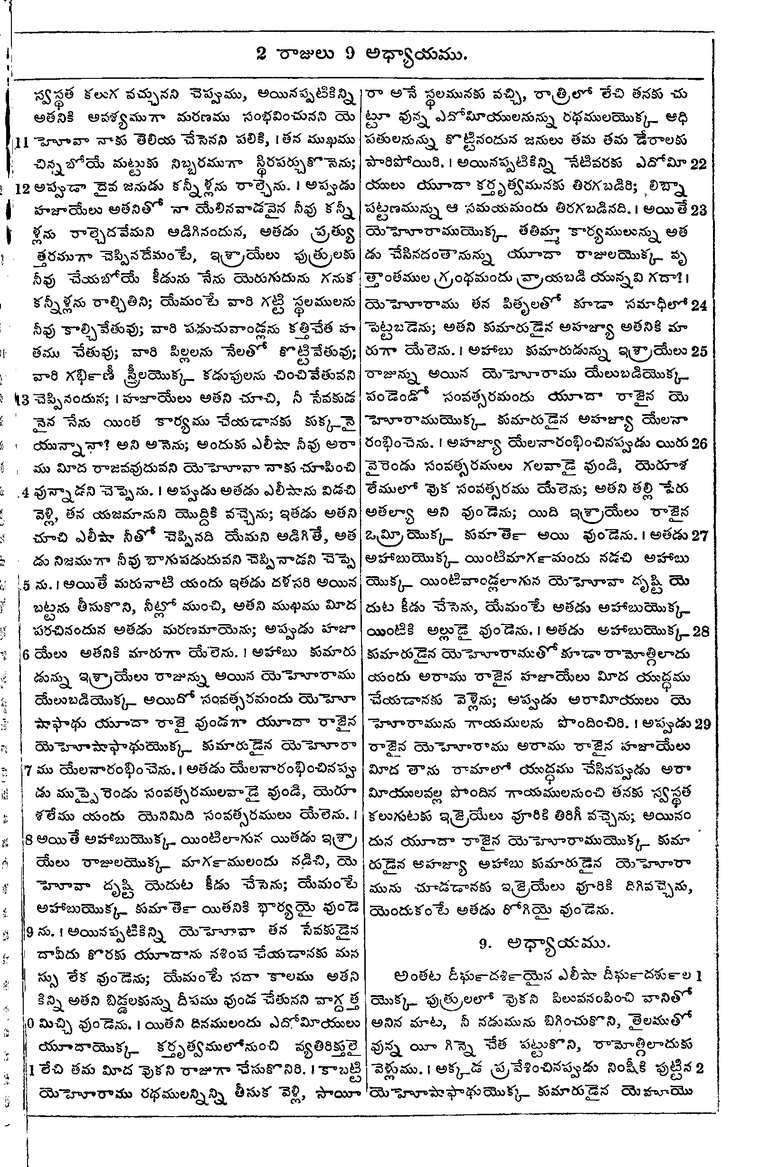 2 రాజులు 9 అధ్యాయము.
స్వస్థత కలుగ వచ్చునని చెప్పుము, అయినప్పటికిన్ని
అతనికి అపశ్యముగా మరణము సంభవించునని యె
11 హెూవా నాకు తెలియ చేసెనని పలికి, । తన ముఖము
చిన్నబోయే మట్టుకు నిబ్బరముగా స్థిరపర్చుకొనెను;
12 అప్పుడా దైవ జనుడు కన్నీళ్లను రాల్చెను. । అప్పుడు
హజాయేలు అతనితో నా యేలినవాడవైన నీవు కన్నీ
ళ్లను రాల్చెదవేమని అడిగినందున, అతడు ప్రత్యు
త్తరముగా చెప్పినదేమంటే, ఇశ్రాయేలు పుత్రులకు
నీవు చేయబోయే కీడును నేను యెరుగుదును గనుక
కన్నీళ్లను రాల్చితిని; యేమంటే వారి గట్టి స్థలములను
నీవు కాల్చివేతువు; వారి పడుచువాండ్లను కత్తిచేత హ
తము చేతువు; వారి పిల్లలను నేలతో కొట్టివేతువు;
వారి గర్భిణీ స్త్రీలయొక్క కడుపులను చించివేతువని
13 చెప్పినందున; । హజాయేలు అతని చూచి, నీ సేవకుడ
నైన నేను యింత కార్యము చేయడానకు కుక్కనై
యున్నానా? అని అనెను; అందుకు ఎలీషా నీవు అరా
ము మీద రాజవవుదువని యెహెూవా నాకు చూపించి
4 వున్నాడని చెప్పెను. । అప్పుడు అతడు ఎలీషాను విడచి
వెళ్లి, తన యజమానుని యొద్దికి వచ్చెను; ఇతడు అతని
చూచి ఎలీషా నీతో చెప్పినది యేమని అడిగితే, అత
డు నిజముగా నీవు బాగుపడుదువని చెప్పినాడని చెప్పె
5 ను. । అయితే మరునాటి యందు ఇతడు దళసరి అయిన
బట్టను తీసుకొని, నీట్లో ముంచి, అతని ముఖము మీద
పరచినందున అతడు మరణమాయెను; అప్పుడు హజా
6 యేలు అతనికి మారుగా యేలెను. । అహాబు కుమారు
డున్ను ఇశ్రాయేలు రాజున్ను అయిన యెహెూరాము
యేలుబడియొక్క అయిదో సంవత్సరమందు యెహెూ
షాఫాథు యూదా రాజై వుండగా యూదా రాజైన
యెహెూషాఫాథుయొక్క కుమారుడైన యెహెూరా
7 ము యేలనారంభించెను. । అతడు యేలనారంభించినప్పు
డు ముప్పైరెండు సంవత్సరములవాడై వుండి, యెరూ
శలేము యందు యెనిమిది సంవత్సరములు యేలెను. ।
8 అయితే అహాబుయొక్క యింటిలాగున యితడు ఇశ్రా
యేలు రాజులయొక్క మార్గములందు నడిచి, యె
హెూవా దృష్టి యెదుట కీడు చేసెను; యేమంటే
అహాబుయొక్క కుమార్తె యితనికి భార్యయై వుండె
9 ను. । అయినప్పటికిన్ని యెహెూవా తన సేవకుడైన
దావీదు కొరకు యూదాను నశింప చేయడానకు మన
స్సు లేక వుండెను; యేమంటే సదా కాలము అతని
కిన్ని అతని బిడ్డలకున్ను దీపము వుండ చేతునని వాగ్దత్త
0 మిచ్చి వుండెను. । యితని దినములందు ఎదోమీయులు
యూదాయొక్క కర్తృత్వములోనుంచి వ్యతిరిక్తులై
1 లేచి తమ మీద వొకని రాజుగా చేసుకొనిరి. । కాబట్టి
యెహెూరాము రథములన్నిన్ని తీసుక వెళ్లి, సాయీ
రా అనే స్థలమునకు వచ్చి, రాత్రిలో లేచి తనకు చు
ట్టూ వున్న ఎదోమీయులనున్ను రథములయొక్క అధి
పతులనున్ను కొట్టినందున జనులు తమ తమ డేరాలకు
పారిపోయిరి. । అయినప్పటికిన్ని నేటివరకు ఎదోమీ 22
యులు యూదా కర్తృత్వమునకు తిరగబడిరి; లిబ్నా
పట్టణమున్ను ఆ సమయమందు తిరగబడినది. । అయితే 23
యెహెూరాముయొక్క తతిమ్మా కార్యములున్ను అత
డు చేసినదంతానున్ను యూదా రాజులయొక్క వృ
త్తాంతముల గ్రంథమందు వ్రాయబడి యున్నవి గదా? ।
యెహెూరాము తన పితృలతో కూడా సమాధిలో 24
పెట్టబడెను; అతని కుమారుడైన అహజ్యా అతనికి మా
రుగా యేలెను. । అహాబు కుమారుడున్ను ఇశ్రాయేలు 25
రాజున్ను అయిన యెహెూరాము యేలుబడియొక్క
పండెండో సంవత్సరమందు యూదా రాజైన యె
హెూరాముయొక్క కుమారుడైన అహజ్యా యేలనా
రంభించెను. । అహజ్యా యేలనారంభించినప్పుడు యిరు 26
వైరెండు సంవత్సరములు గలవాడై వుండి, యెరూశ
లేములో వొక సంవత్సరము యేలెను; అతని తల్లి పేరు
అతల్యా అని వుండెను; యిది ఇశ్రాయేలు రాజైన
ఒమ్రియొక్క కుమార్తె అయి వుండెను. । అతడు 27
అహాబుయొక్క యింటిమార్గమందు నడచి అహాబు
యొక్క యింటివాండ్లలాగున యెహెూవా దృష్టి యె
దుట కీడు చేసెను, యేమంటే అతడు అహాబుయొక్క
యింటికి అల్లుడై వుండెను. । అతడు అహాబుయొక్క 28
కుమారుడైన యెహెూరాముతో కూడా రామోత్గిలాదు
యందు అరాము రాజైన హజాయేలు మీద యుద్ధము
చేయడానకు వెళ్లెను; అప్పుడు అరామీయులు యె
హెూరామును గాయములను పొందించిరి. । అప్పుడు 29
రాజైన యెహెూరాము అరాము రాజైన హజాయేలు
మీద తాను రామాలో యుద్ధము చేసినప్పుడు అరా
మీయులవల్ల పొందిన గాయములనుంచి తనకు స్వస్థత
కలుగుటకు ఇజ్రెయేలు వూరికి తిరిగీ వచ్చెను; అయినం
దున యూదా రాజైన యెహెూరాముయొక్క కుమా
రుడైన అహజ్యా అహాబు కుమారుడైన యెహెూరా
మును చూడడానకు ఇజ్రెయేలు వూరికి దిగివచ్చెను,
యెందుకంటే అతడు రోగియై వుండెను.
9. అధ్యాయము.
అంతట దీర్ఘదర్శియైన ఎలీషా దీర్ఘదర్శుల 1
యొక్క పుత్రులలో వొకని పిలువనంపించి వానితో
అనిన మాట, నీ నడుమును బిగించుకొని, తైలముతో
వున్న యీ గిన్నె చేత పట్టుకొని, రామోత్గిలాదుకు
వెళ్లుము. । అక్కడ ప్రవేశించినప్పుడు నింషీకి పుట్టిన 2
యెహెూషాఫాథుయొక్క కుమారుడైన యెహూయొ